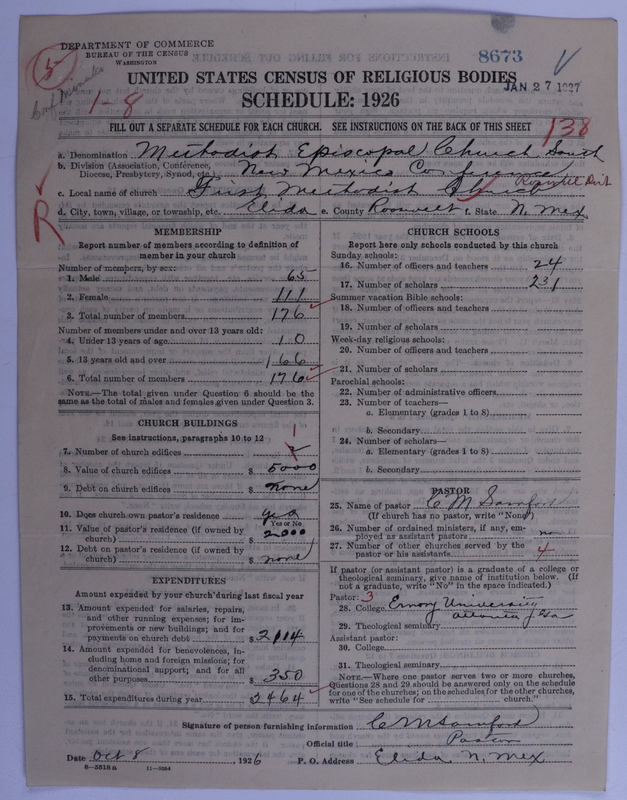 DEPARTMENT OF COMMERCE
BUREAU OF THE CENSUS
WASHINGTON
8673
JAN 27 1927
5
1-8
UNITED STATES CENSUS OF RELIGIOUS BODIES
SCHEDULE: 1926
FILL OUT A SEPARATE SCHEDULE FOR EACH CHURCH. SEE INSTRUCTIONS ON THE BACK OF THIS SHEET
138
a. Denomination Methodist Episcopal Church South
b. Division (Association, Conference, Diocese, Presbytery, Synod, etc.) New Mexico Conference
c. Local name of church First Methodist Church
d. City, town, village, or township, etc. Elida e. County Roosvelt f. State N. Mex
R
MEMBERSHIP
Report number of members according to definition of
member in your church
Number of members, by sex:
1. Male 65
2. Female 111
3. Total number of members 176
Number of members under and over 13 years old:
4. Under 13 years of age 10
5. 13 years old and over 166
6. Total number of members 176
NOTE.—The total given under Question 6 should be the
same as the total of males and females given under Question 3.
CHURCH BUILDINGS
See instructions, paragraphs 10 to 12
1
7. Number of church edifices
8. Value of church edifices $ 5000
9. Debt on church edifices $ none
10. Does church own pastor's residence? yes
Yes or No
11. Value of pastor's residence (if owned by
church) $ 2000
12. Debt on pastor's residence (if owned by
church) $ none
EXPENDITURES
Amount expended by your church during last fiscal year
13. Amount expended for salaries, repairs,
and other running expenses; for im-
provements or new buildings; and for
payments on church debt $ 2114
14. Amount expended for benevolences, in-
cluding home and foreign missions; for
denominational support; and for all
other purposes $ 350
15. Total expenditures during year $ 2464
CHURCH SCHOOLS
Report here only schools conducted by this church
Sunday schools:
16. Number of officers and teachers 24
17. Number of scholars 231
Summer vacation Bible schools:
18. Number of officers and teachers
19. Number of scholars
Week-day religious schools:
20. Number of officers and teachers
21. Number of scholars
Parochial schools:
22. Number of administrative officers
23. Number of teachers—
a. Elementary (grades 1 to 8)
b. Secondary
24. Number of scholars—
a. Elementary (grades 1 to 8)
b. Secondary
PASTOR
25. Name of pastor C M Samford
(If church has no pastor, write "None")
26. Number of ordained ministers, if any, em-
ployed as assistant pastors no
27. Number of other churches served by the
pastor or his assistants 4
If pastor (or assistant pastor) is a graduate of a college or
theological seminary, give name of institution below. (If
not a graduate, write "No" in the space indicated.)
Pastor: 3
28. College Emory University
29. Theological seminary Atlanta Ga
Assistant pastor:
30. College
31. Theological seminary
NOTE.—Where one pastor serves two or more churches,
Questions 28 and 29 should be answered only on the schedule
for one of the churches; on the schedules for the other churches,
write "See schedule for church."
Signature of person furnishing information C M Samford
Official title Pastor
Date Oct 8 1926 P. O. Address Elida N. Mex
8-5518a 11-9264